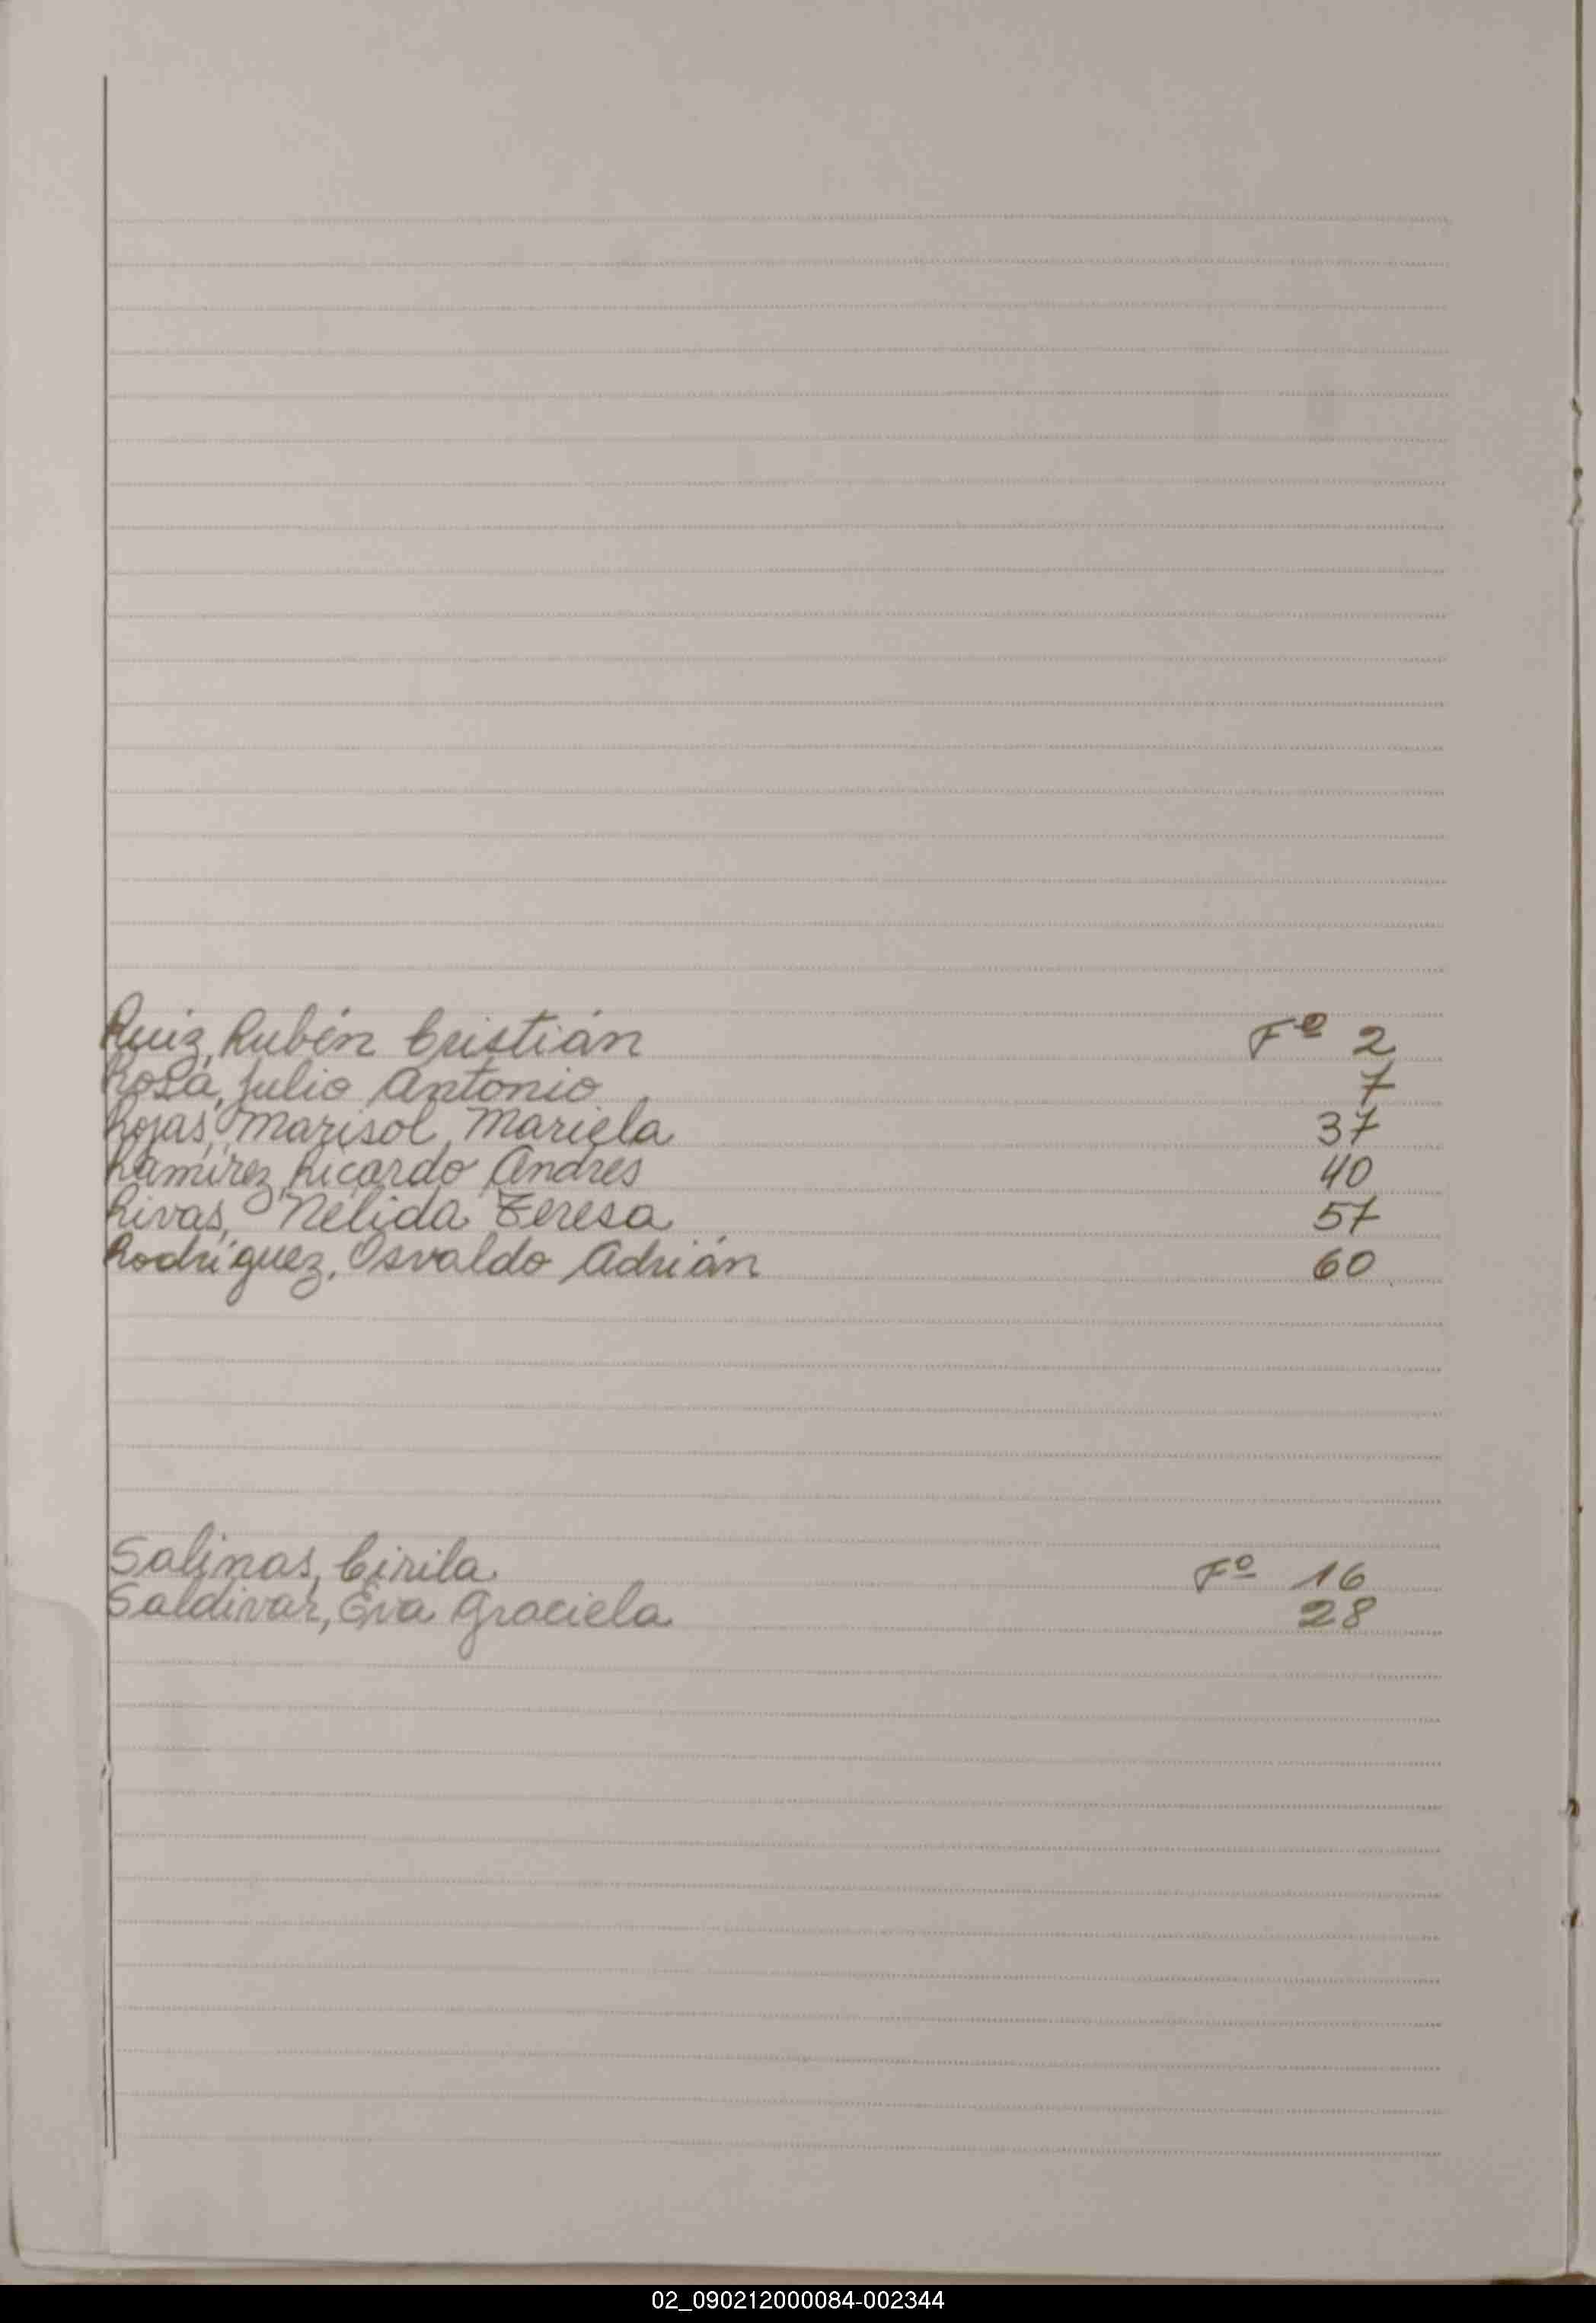 Ruiz, Rubén Cristián Fº 2
Rosa, Julio Antonio 7
Rojas, Marisol Mariela 37
Ramírez, Ricardo Andrés 40
Rivas, Nélida Teresa 57
Rodríguez, Osvaldo Adrián 60
Salinas, Cirila Fº 16
Saldivar, Eva Graciela 28
02_090212000084-002344